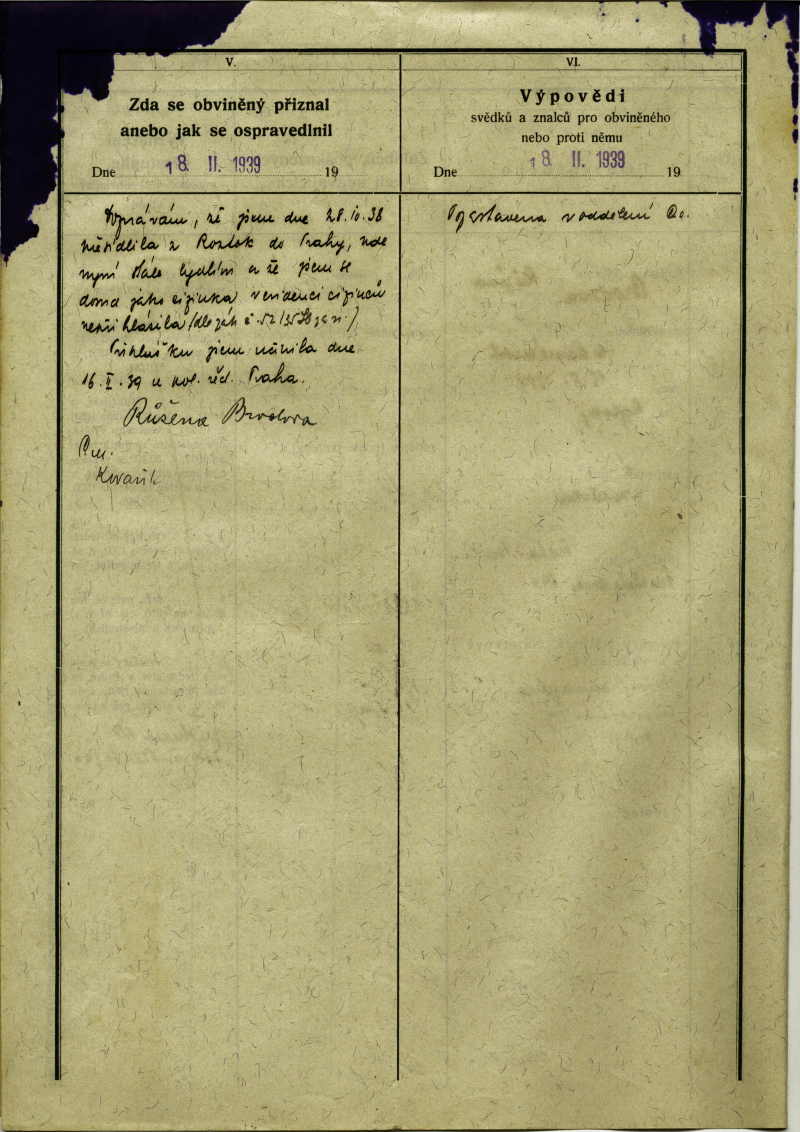 V.
Zda se obviněný přiznal
anebo jak se ospravedlnil
Dne 18. II. 1939 19
VI.
Výpovědi
svědků a znalců pro obviněného
nebo proti němu
Dne 18. II. 1939 19
že jsem dne 28.10.38
z Roztok do Prahy, kde
nyní stále bydlím a že jsem se
doma jako cizinka v evidenci cizinců
nepřihlásila /dle zák č. 52/35 Sb z a n./
Přihlášku jsem učinila dne
16. II. 39 u pol. řed. Praha.
Růžena
v oddělení